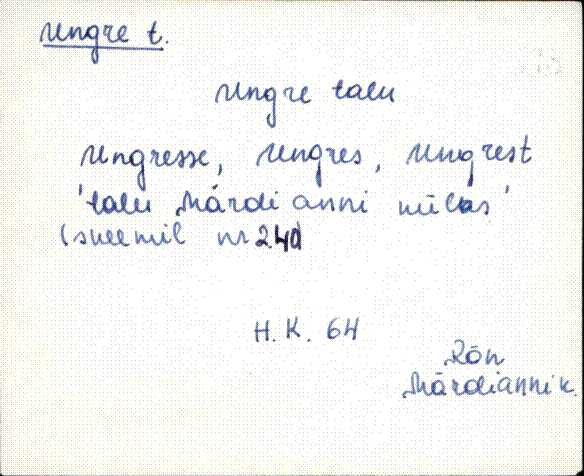 Ungre t.
Ungre talu
Ungresse, Ungres, Ungrest
'talu Mārdi anni külas'
(suumil nr 240)
H. K. 64
Rõn
Mārdianni k.